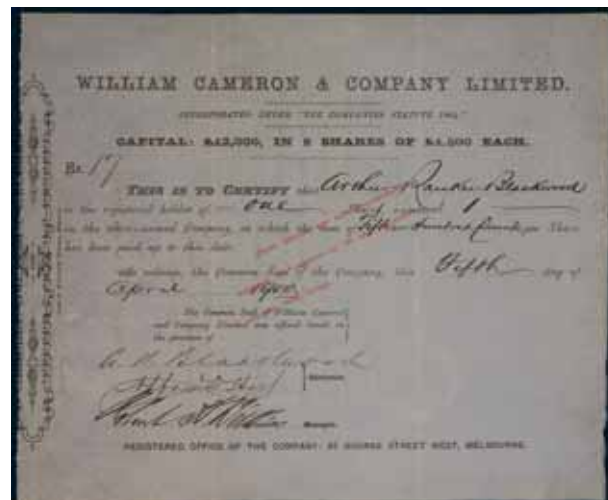 WILLIAM CAMERON & COMPANY LIMITED.
INCORPORATED UNDER "THE COMPANIES STATUTE 1864."
CAPITAL: £12,000, IN 8 SHARES OF £1,500 EACH.
No. 17
THIS IS TO CERTIFY that Arthur Ranken Blackwood
is the registered holder of One Share numbered 1
in the above-named Company, on which the sum of Fifteen Hundred Pounds per Share
has been paid up to this date.
the Common Seal of the Company, this Fifth day of
April
The Common Seal of William Cameron
and Company Limited was affixed hereto in
the presence of
A. R. Blackwood
Directors.
Manager.
REGISTERED OFFICE OF THE COMPANY: STREET WEST, MELBOURNE.